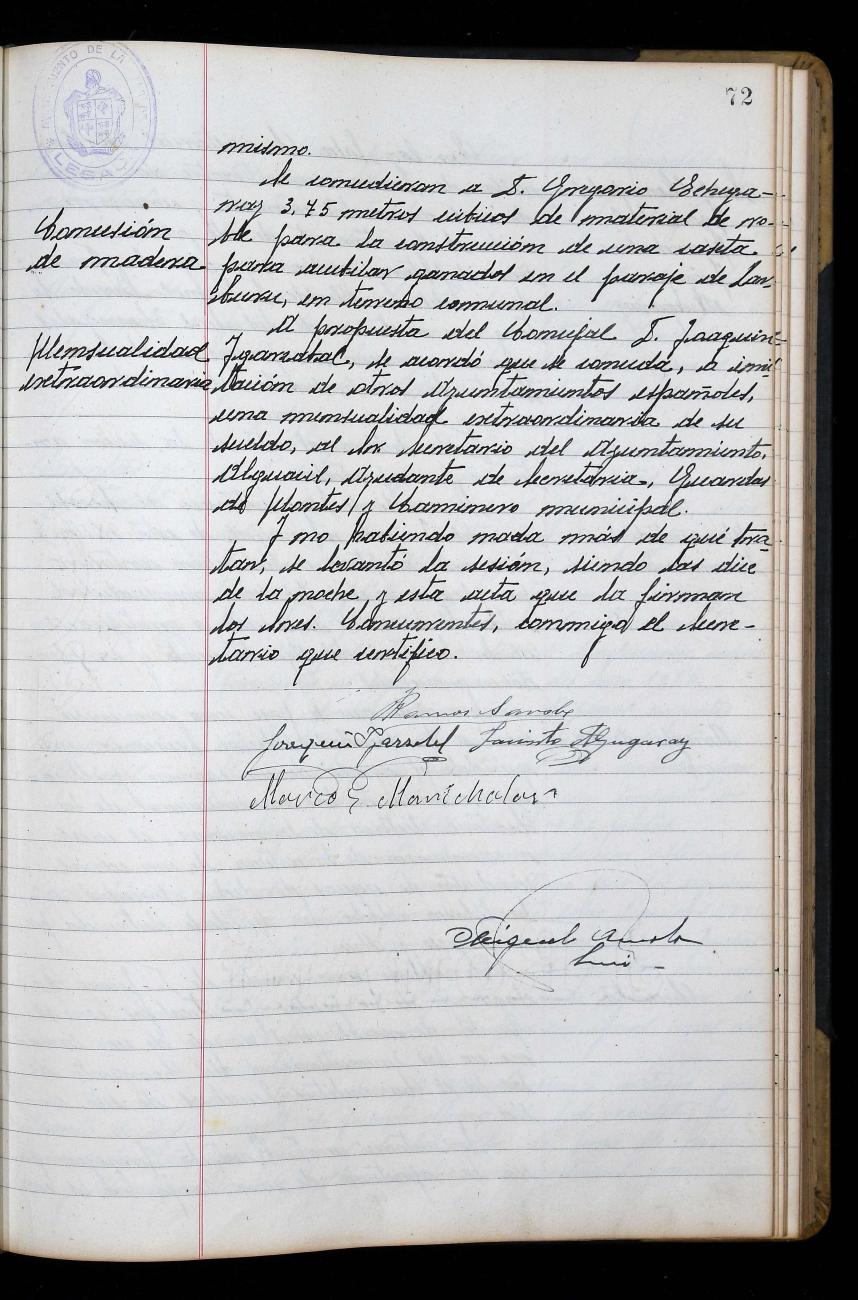 72
AYUNTAMIENTO DE LA
LESACA
mismo.
Se concedieron a D. Gregorio Echega-
ray 3,75 metros cúbicos de material de ro-
Concesión
ble para la construcción de una caseta
de madera
para acubilar ganados en el paraje de Lar-
buru, en terreno comunal.
A propuesta del Concejal D. Joaquin
Mensualidad
Igarzabal, se acordó que se conceda, a imi-
extraordinaria
tación de otros Ayuntamientos españoles,
una mensualidad extraordinaria de su
sueldo, al Sr. Secretario del Ayuntamiento,
Alguacil, Ayudante de Secretaria, Guardas
de Montes y Caminero municipal.
Y no habiendo nada más de qué tra-
tar, se levantó la sesión, siendo las diez
de la noche, y esta acta que la firman
los Sres. Concurrentes, conmigo el Secre-
tario que certifico.
Ramos
Joaquin Igarzabal Jacinto
Marcos Marichalar
Miguel